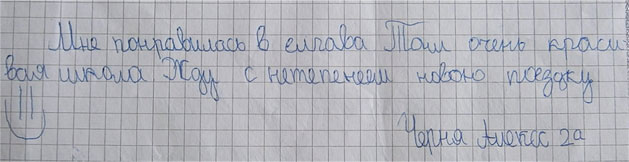 Мне понравилась в елгава Там очень краси
вая школа Жду с нетепенем новою поездку
Черня Алекс 2а